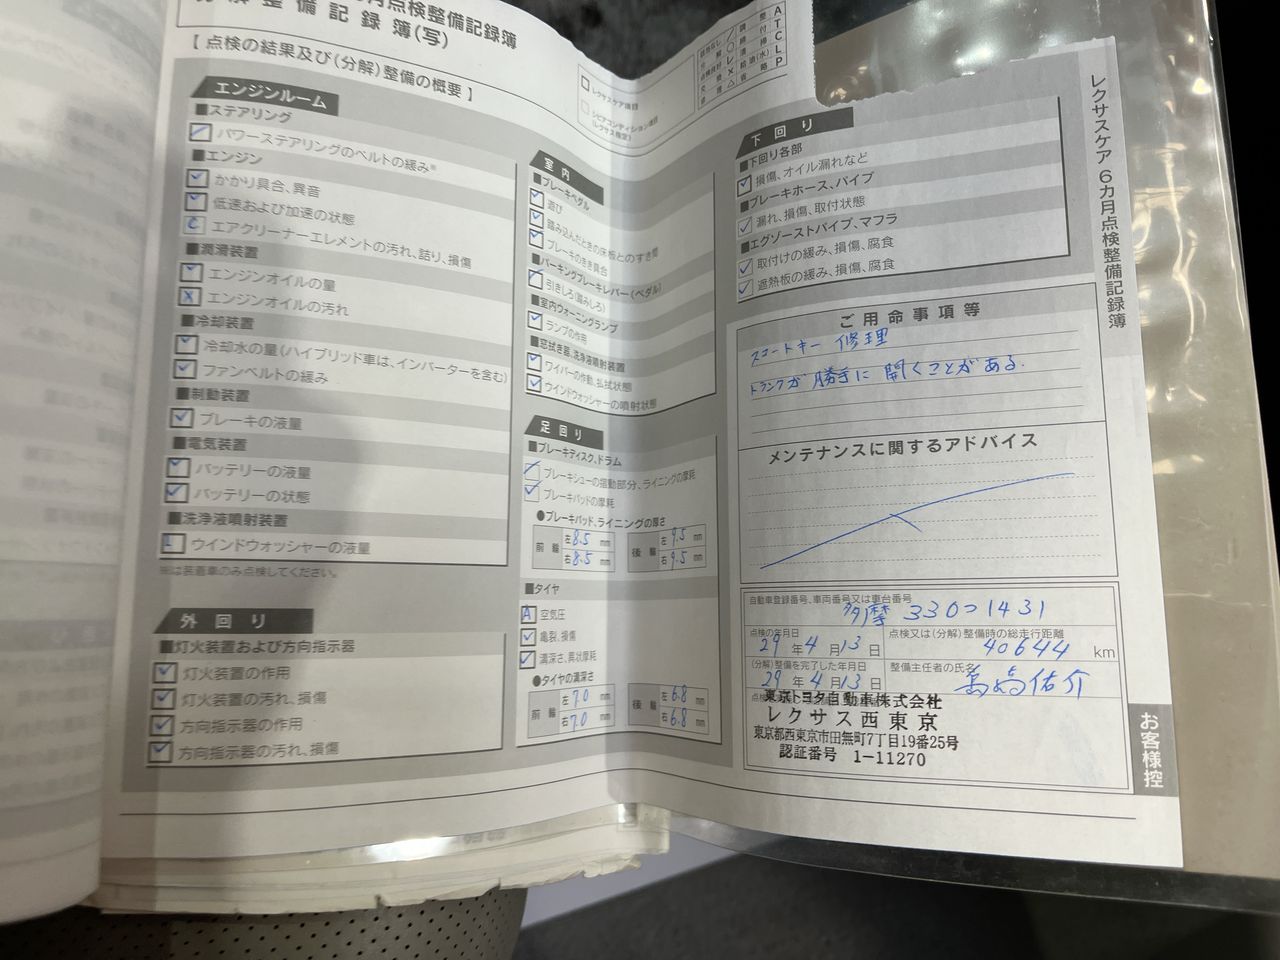 月点検整備記録簿
整備記録簿(写)
【 点検の結果及び(分解)整備の概要 】
レクサスケア項目
エンジンルーム
■ステアリング
パワーステアリングのベルトの緩み※
■エンジン
かかり具合、異音
低速および加速の状態
C エアクリーナーエレメントの汚れ、詰り、損傷
■潤滑装置
エンジンオイルの量
X エンジンオイルの汚れ
■冷却装置
冷却水の量(ハイブリッド車は、インバーターを含む)
ファンベルトの緩み
■制動装置
ブレーキの液量
■電気装置
バッテリーの液量
バッテリーの状態
■洗浄液噴射装置
L ウインドウォッシャーの液量
※は装着車のみ点検してください。
外回り
■灯火装置および方向指示器
灯火装置の作用
灯火装置の汚れ、損傷
方向指示器の作用
方向指示器の汚れ、損傷
室内
■ブレーキペダル
遊び
踏み込んだときの床板とのすき間
ブレーキのきき具合
■パーキングブレーキレバー(ペダル)
引きしろ(踏みしろ)
■室内ウォーニングランプ
ランプの作用
■窓拭き器、洗浄液噴射装置
ワイパーの作動、払拭状態
ウインドウォッシャーの噴射状態
足回り
■ブレーキディスク、ドラム
ブレーキシューの摺動部分、ライニングの摩耗
ブレーキパッドの摩耗
●ブレーキパッド、ライニングの厚さ
前輪 左 8.5 mm 右 8.5 mm 後輪 左 9.5 mm 右 9.5 mm
■タイヤ
A 空気圧
亀裂、損傷
溝深さ、異状摩耗
●タイヤの溝深さ
前輪 左 7.0 mm 右 7.0 mm 後輪 左 6.8 mm 右 6.8 mm
下回り
■下回り各部
損傷、オイル漏れなど
■ブレーキホース、パイプ
漏れ、損傷、取付状態
■エグゾーストパイプ、マフラ
取付けの緩み、損傷、腐食
遮熱板の緩み、損傷、腐食
ご用命事項等
スマートキー 修理
トランクが 勝手に 開くことがある.
メンテナンスに関するアドバイス
自動車登録番号、車両番号又は車台番号
多摩 330つ1431
点検の年月日
29 年 4 月 13 日
点検又は(分解)整備時の総走行距離
40644 km
(分解)整備を完了した年月日
29 年 4 月 13 日
整備主任者の氏名
東京トヨタ自動車株式会社
レクサス西東京
東京都西東京市田無町7丁目19番25号
認証番号 1-11270
レクサスケア 6カ月点検整備記録簿
お客様控